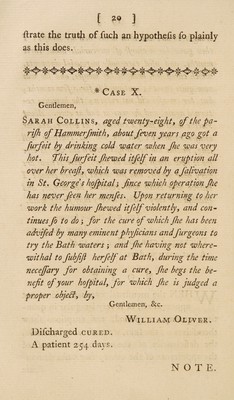 [ 20 ]
ſtrate the truth of ſuch an hypotheſis ſo plainly
as this does.
* CASE X.
Gentlemen,
SARAH COLLINS, aged twenty-eight, of the pa-
riſh of Hammerſmith, about ſeven years ago got a
ſurfeit by drinking cold water when ſhe was very
hot. This ſurfeit ſhewed itſelf in an eruption all
over her breaſt, which was removed by a ſalivation
in St. George's hoſpital; ſince which operation ſhe
has never ſeen her menſes. Upon returning to her
work the humour ſhewed itſelf violently, and con-
tinues ſo to do; for the cure of which ſhe has been
adviſed by many eminent phyſicians and ſurgeons to
try the Bath waters; and ſhe having not where-
withal to ſubſiſt herſelf at Bath, during the time
neceſſary for obtaining a cure, ſhe begs the be-
nefit of your hoſpital, for which ſhe is judged a
proper object, by,
Gentlemen, &c.
WILLIAM OLIVER.
Diſcharged CURED.
A patient 254 days.
NOTE.